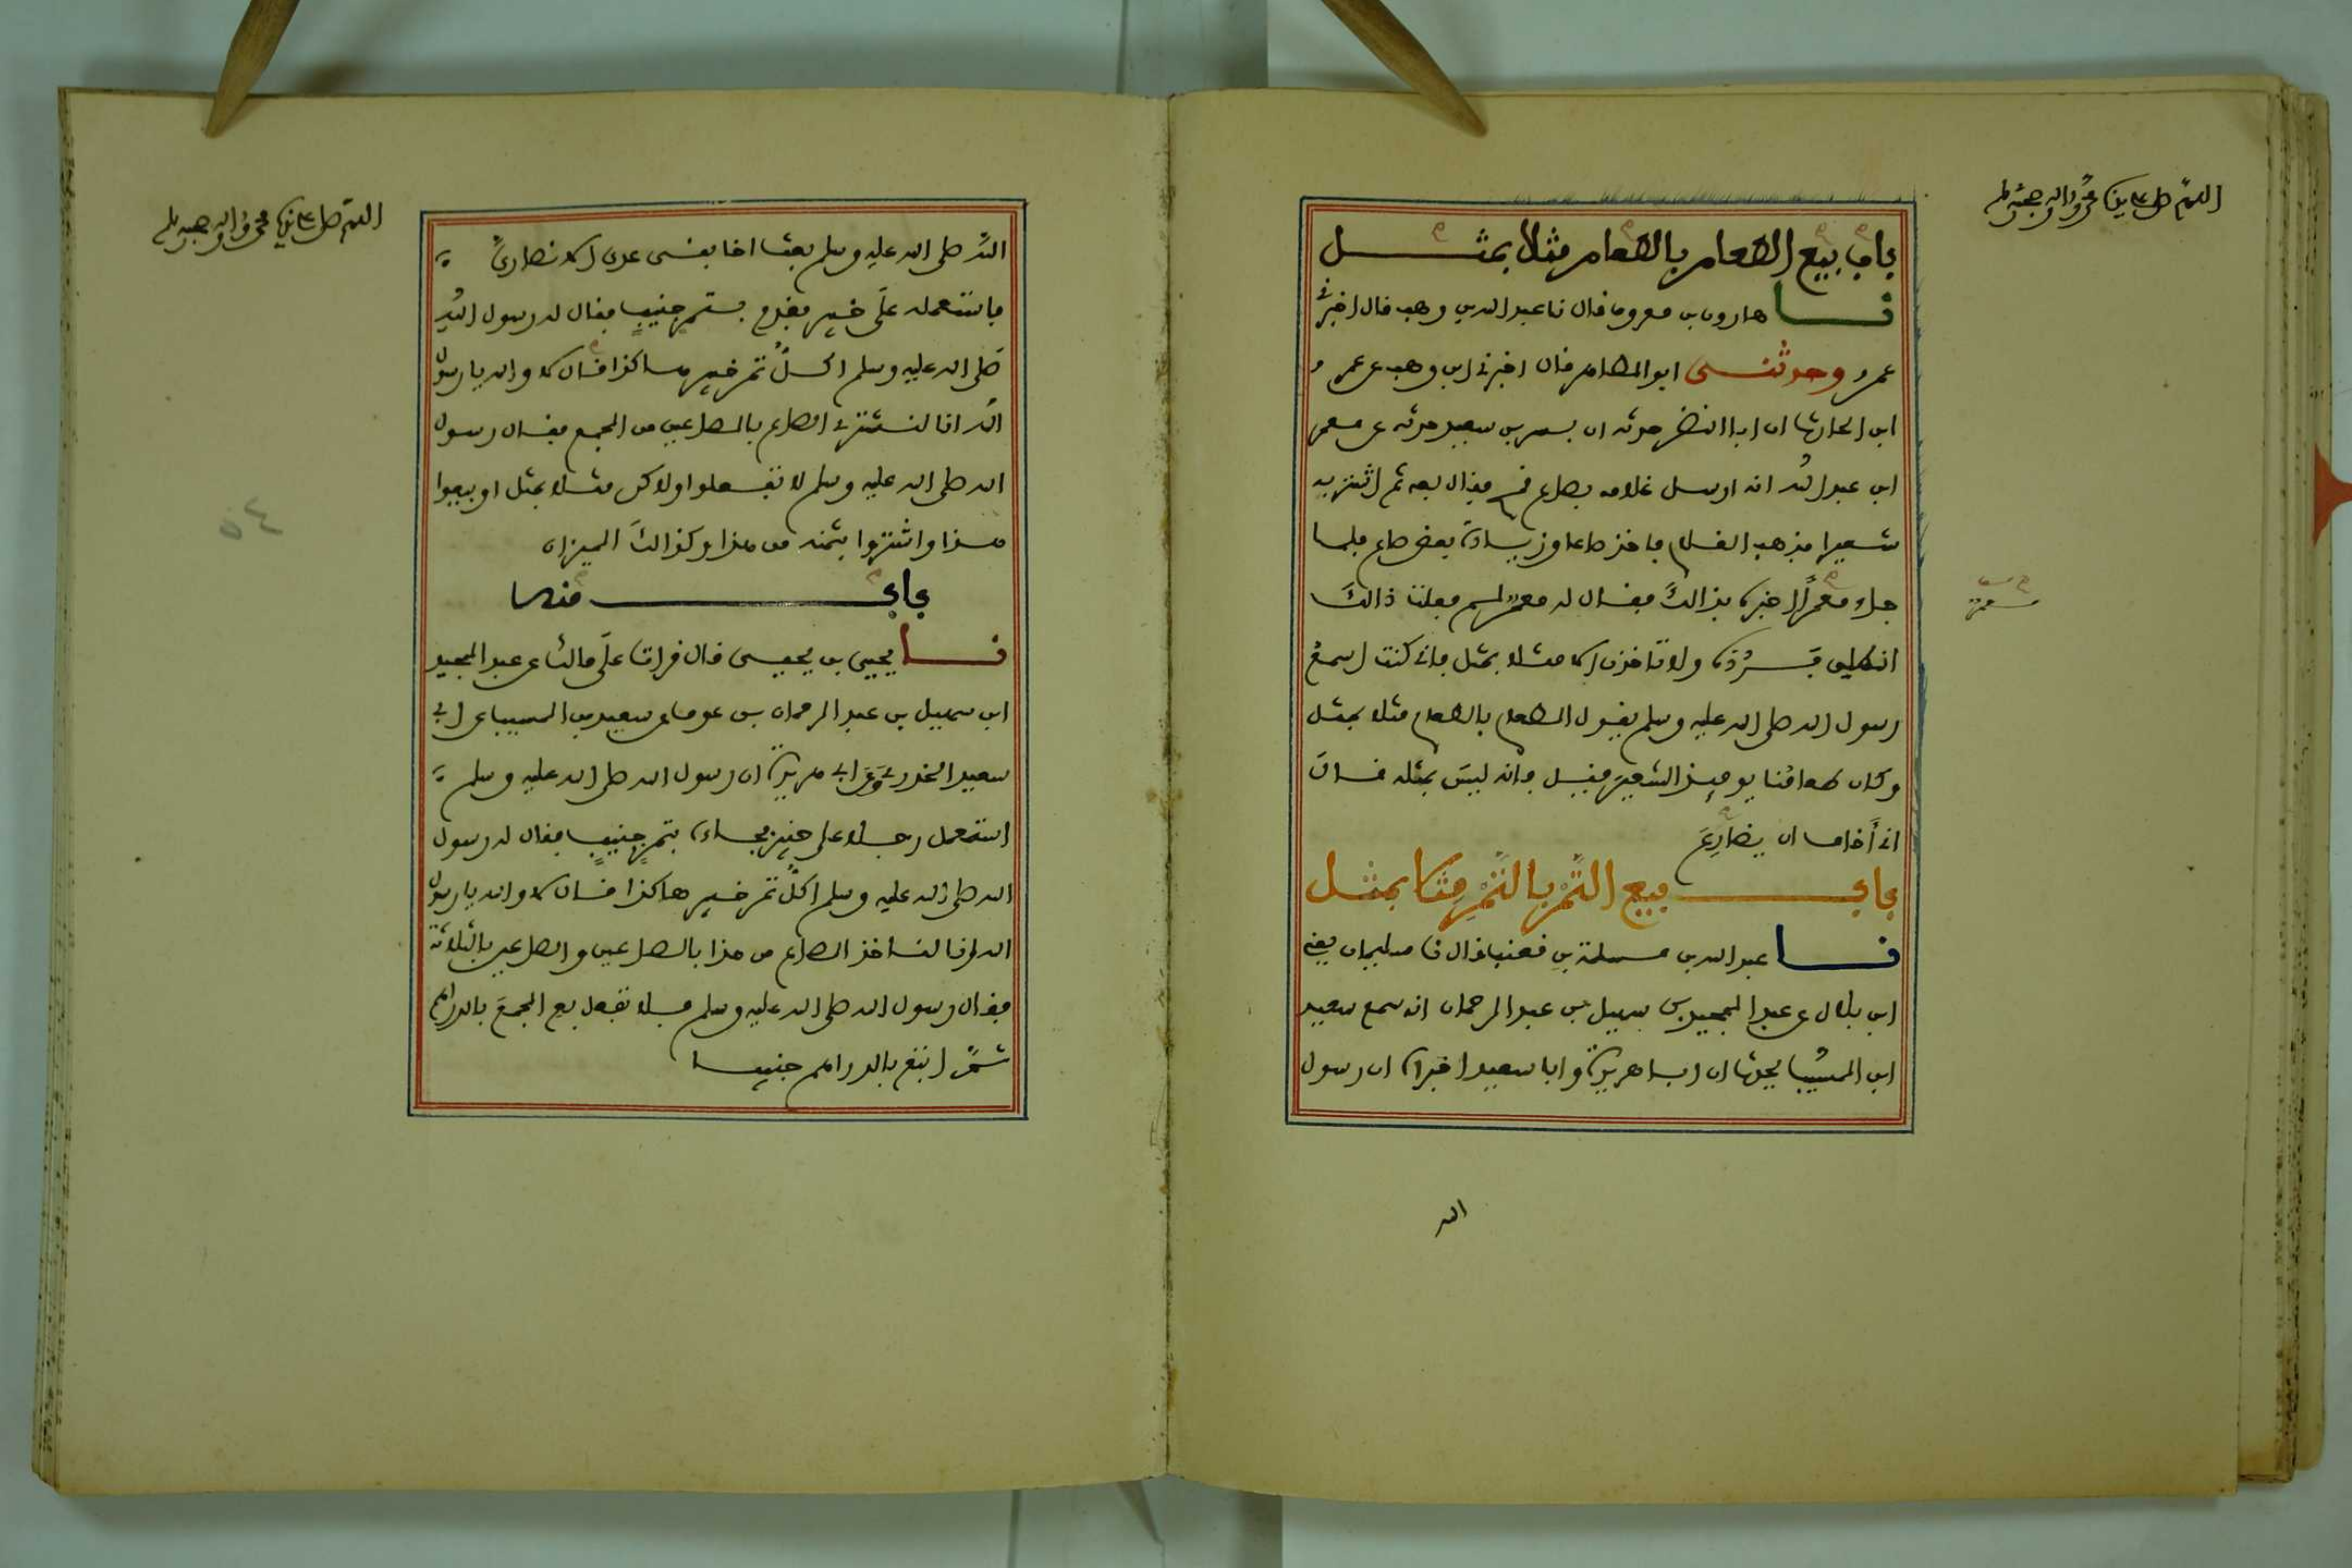 اللهم صل على سيدنا محمد وآله وصحبه وسلم
باب بيع الطعام بالطعام مثلا بمثل
نا هارون بن معروف قال نا عبد الله بن وهب قال اخبرني
عمرو وحدثني ابو الطاهر قال اخبرني ابن وهب عن عمرو
ابن الحارث ان ابا النضر حدثه ان بسر بن سعيد حدثه عن معمر
ابن عبد الله انه ارسل غلامه بصاع قمح فقال بعه ثم اشتر به
شعيرا فذهب الغلام فاخذ صاعا وزيادة بعض صاع فلما
جاء معمرا اخبره بذالك فقال له معمر لم فعلت ذالك
انطلق فرده ولا تاخذن الا مثلا بمثل فاني كنت اسمع
رسول الله صلى الله عليه وسلم يقول الطعام بالطعام مثلا بمثل
وكان طعامنا يوميذ الشعير فقيل فانه ليس بمثله قال
اني أخاف ان يضارع
باب بيع التمر بالتمر مثلا بمثل
نا عبد الله بن مسلمة بن قعنب قال نا سليمان يعني
ابن بلال عن عبد المجيد بن سهيل بن عبد الرحمان انه سمع سعيد
ابن المسيب يحدث ان ابا هريرة وابا سعيد اخبراه ان رسول
الله
اللهم صل على سيدنا محمد وآله وصحبه وسلم
الله صلى الله عليه وسلم بعث اخا بني عدي الانصاري
فاستعمله على خيبر فقدم بتمر جنيب فقال له رسول الله
صلى الله عليه وسلم اكل تمر خيبر هاكذا قال لا والله يا رسول
الله انا لنشتري الصاع بالصاعين من الجمع فقال رسول
الله صلى الله عليه وسلم لا تفعلوا ولاكن مثلا بمثل او بيعوا
هذا واشتروا بثمنه من هذا وكذالك الميزان
باب منه
نا يحيى بن يحيى قال قرات على مالك عن عبد المجيد
ابن سهيل بن عبد الرحمان بن عوف عن سعيد بن المسيب عن ابي
سعيد الخدري وعن ابي هريرة ان رسول الله صلى الله عليه وسلم
استعمل رجلا على خيبر فجاءه بتمر جنيب فقال له رسول
الله صلى الله عليه وسلم اكل تمر خيبر هاكذا قال لا والله يا رسول
الله انا لناخذ الصاع من هذا بالصاعين والصاعين بالثلاثة
فقال رسول الله صلى الله عليه وسلم فلا تفعل بع الجمع بالدراهم
ثم ابتع بالدراهم جنيبا
٥٤